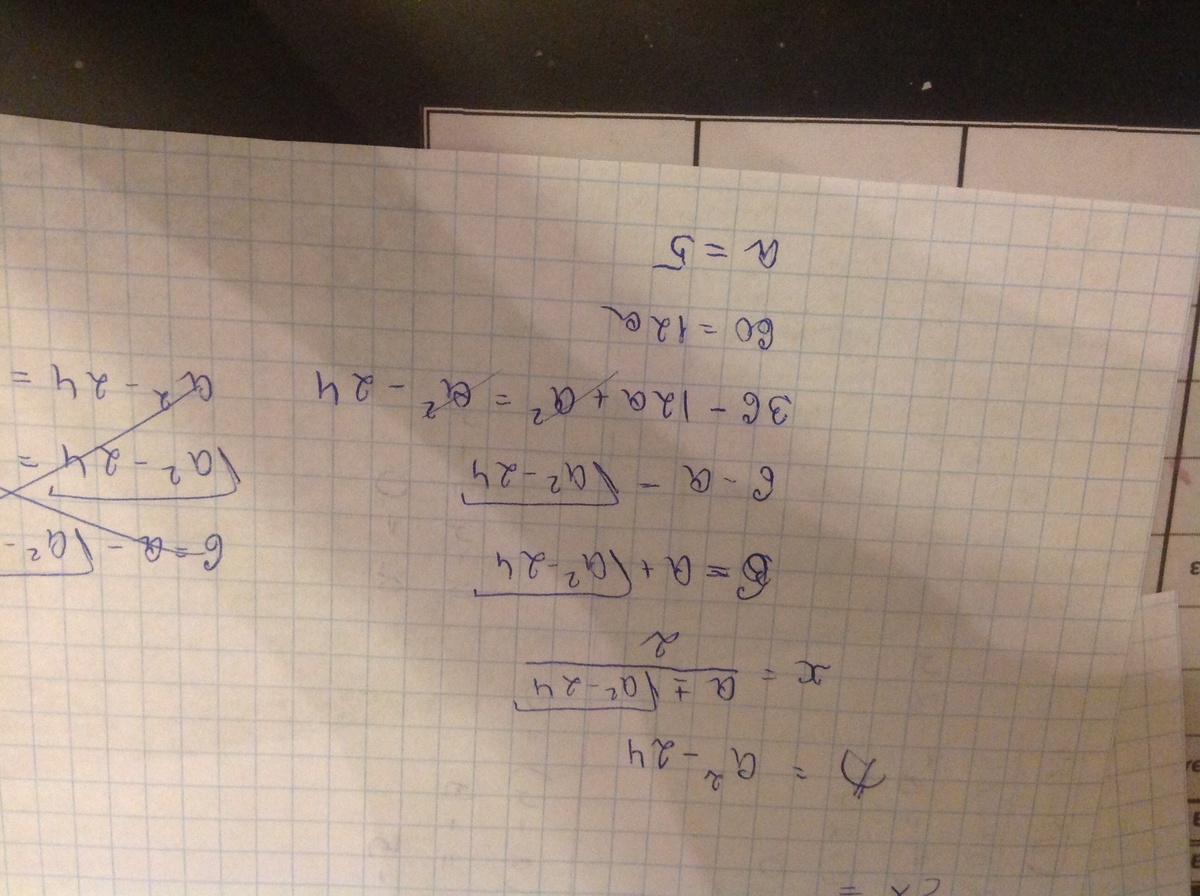 D = a² - 24
x = (a ± √(a² - 24)) / 2
6 = a + √(a² - 24)
6 - a = √(a² - 24)
36 - 12a + a² = a² - 24
60 = 12a
a = 5
6 = a - √(a² -
√(a² - 24 =
a² - 24 =